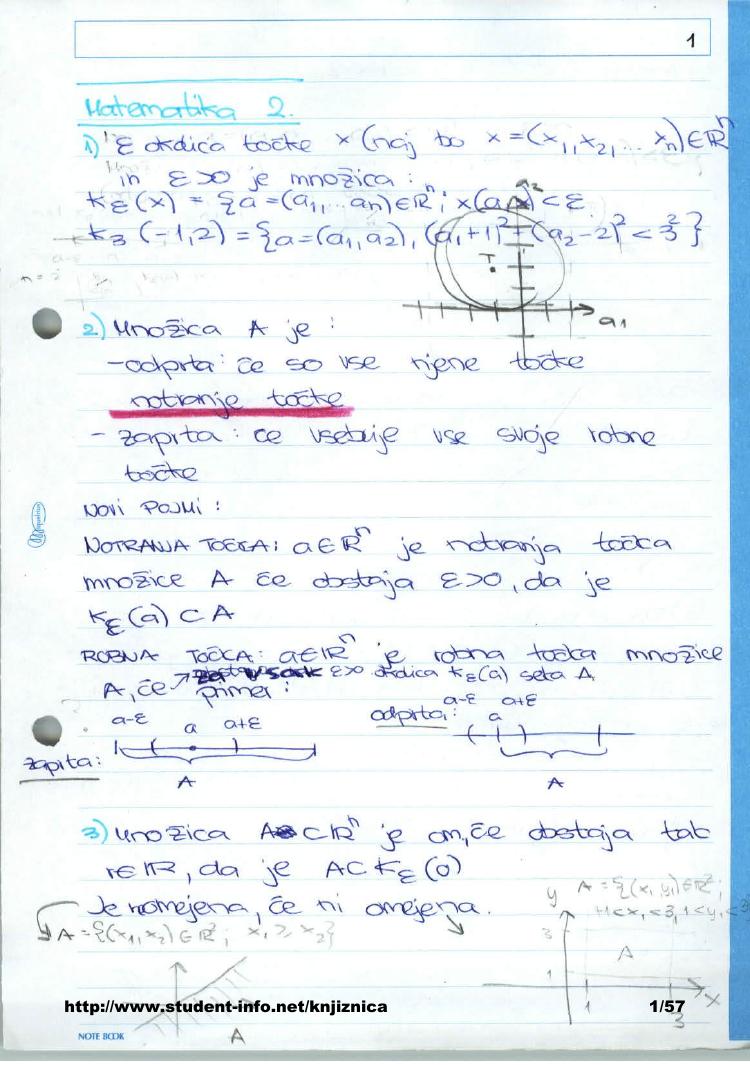 1
Matematika 2.
1) ε okolica točke x (naj bo x = (x₁, x₂, ... xₙ) ∈ ℝⁿ
in ε>0 je množica:
Kε(x) = {a = (a₁, ... aₙ) ∈ ℝⁿ; x(a,x) < ε
K₃(-1,2) = {a = (a₁, a₂), (a₁+1)² + (a₂-2)² < 3²}
a₂
T
a₁
2) Množica A je :
-odprta: če so vse njene točke
notranje točke
- zaprta: če vsebuje vse svoje robne
točke
NOVI POJMI :
NOTRANJA TOČKA: a∈ℝⁿ je notranja točka
množice A če obstaja ε>0, da je
Kε(a) ⊂ A
ROBNA TOČKA: a∈ℝⁿ je robna točka množice
A, če vsak ε>0 okolica Kε(a) seka A.
primer :
a-ε a a+ε
zaprta:
A
odprta:
a-ε a a+ε
A
3) Množica A ⊂ ℝⁿ je om, če obstaja tak
r∈ℝ, da je A ⊂ Kε(0)
Je neomejena, če ni omejena.
A = {(x₁, x₂) ∈ ℝ²; x₁ ≥ x₂}
A
y
A = {(x, y) ∈ ℝ²;
1<x<3, 1<y<3
3
A
1
1
3
x
http://www.student-info.net/knjiznica
1/57
NOTE BOOK